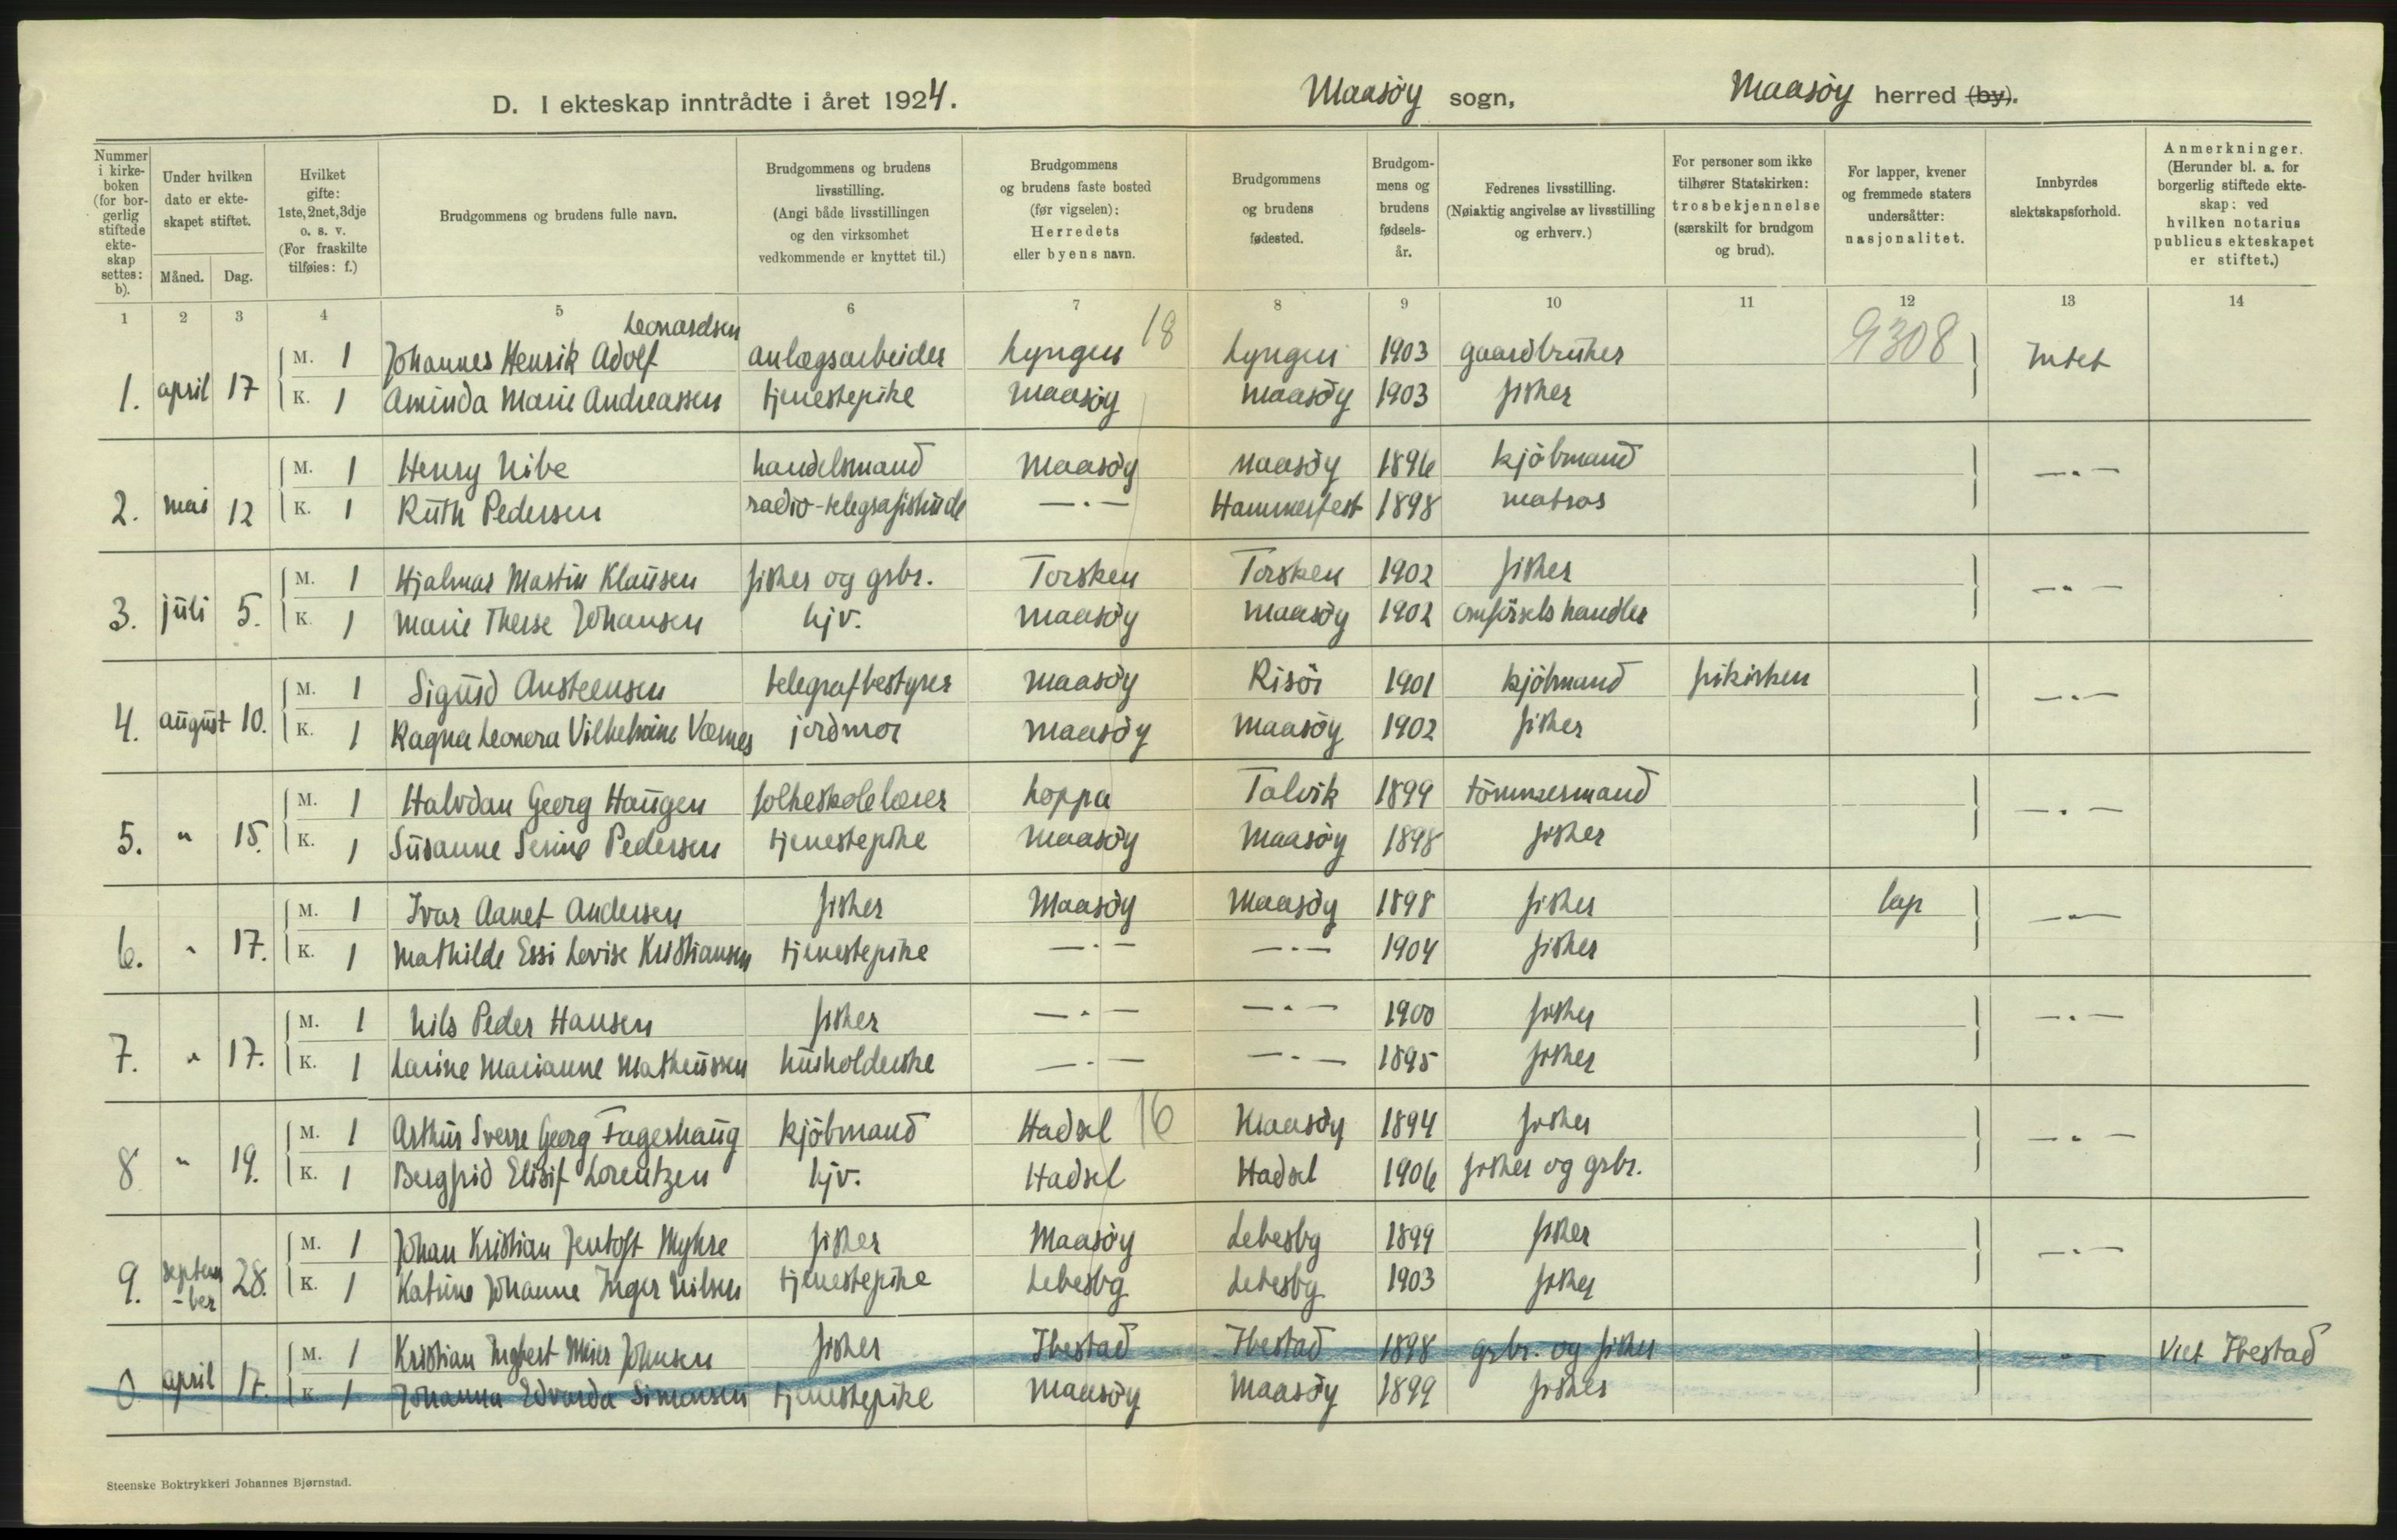 D. I ekteskap inntrådte i året 1924. Maasöy sogn, Maasöy herred (by).
Nummer i kirkeboken (for borgerlig stiftede ekteskap settes: b).
Under hvilken dato er ekteskapet stiftet.
Måned. Dag.
Hvilket gifte: 1ste, 2net, 3dje o. s. v. (For fraskilte tilføies: f.)
Brudgommens og brudens fulle navn.
Brudgommens og brudens livsstilling. (Angi både livsstillingen og den virksomhet vedkommende er knyttet til.)
Brudgommens og brudens faste bosted (før vigselen): Herredets eller byens navn.
Brudgommens og brudens fødested.
Brudgommens og brudens fødselsår.
Fedrenes livsstilling. (Nøiaktig angivelse av livsstilling og erhverv.)
For personer som ikke tilhører Statskirken: trosbekjennelse (særskilt for brudgom og brud).
For lapper, kvener og fremmede staters undersåtter: nasjonalitet.
Innbyrdes slektskapsforhold.
Anmerkninger. (Herunder bl. a. for borgerlig stiftede ekteskap: ved hvilken notarius publicus ekteskapet er stiftet.)
1 2 3 4 5 6 7 8 9 10 11 12 13 14
Leonardsen 18 9308
M. 1 Johannes Henrik Adolf anlægsarbeider Lyngen Lyngen 1903 gaardbruker Intet
1. april 17 K. 1 Aminda Marie Andreassen tjenestepike Maasöy Maasöy 1903 fisker
M. 1 Henry Nibe handelsmand Maasöy Maasöy 1896 kjöbmand —"—
2. mai 12 K. 1 Ruth Pedersen radio-telegrafistinde —"— Hammerfest 1898 matros
M. 1 Hjalmar Martin Klausen fisker og grbr. Torsken Torsken 1902 fisker —"—
3. juli 5. K. 1 Marie Therse Johansen hjv. Maasöy Maasöy 1902 omförselshandler
M. 1 Sigurd Austeensen telegrafbestyrer Maasöy Risör 1901 kjöbmand frikirken —"—
4. august 10. K. 1 Ragna Leonora Vilhelmine Værnes jordmor Maasöy Maasöy 1902 fisker
M. 1 Halvdan Georg Haugen folkeskolelærer Loppa Talvik 1899 tömmermand —"—
5. " 15. K. 1 Susanne Serine Pedersen tjenestepike Maasöy Maasöy 1898 fisker
M. 1 Ivar Aanet Andersen fisker Maasöy Maasöy 1898 fisker lap —"—
6. " 17. K. 1 Mathilde Essi Lovise Kristiansen tjenestepike —"— —"— 1904 fisker
M. 1 Nils Peder Hansen fisker —"— —"— 1900 fisker —"—
7. " 17. K. 1 Larine Marianne Matheussen husholderske —"— —"— 1895 fisker
M. 1 Arthur Sverre Georg Fagerhaug kjöbmand Hadsel 16 Maasöy 1894 fisker —"—
8 " 19. K. 1 Bergfrid Elisif Lorentzen hjv. Hadsel Hadsel 1906 fisker og grbr.
M. 1 Johan Kristian Jentoft Myhre fisker Maasöy Lebesby 1899 fisker —"—
9. september 28. K. 1 Katrine Johanne Inger Nilsen tjenestepike Lebesby Lebesby 1903 fisker
M. 1 Kristian Ingbert Meier Johnsen fisker Ibestad Ibestad 1898 grbr. og fisker —"— Viet Ibestad
0 april 17. K. 1 Johanna Edvarda Simonsen tjenestepike Maasöy Maasöy 1899 fisker
Steenske Boktrykkeri Johannes Bjørnstad.